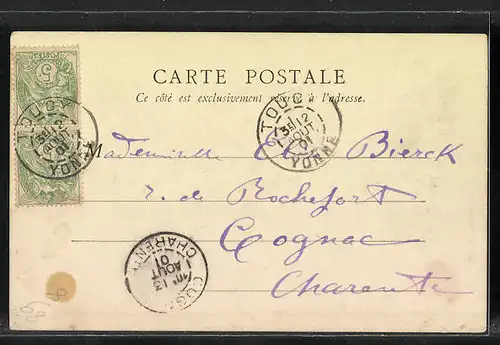 CARTE POSTALE
Ce côté est exclusivement réservé à l'adresse.
5
POSTES
TOUCY
3E / 12
AOUT
01
YONNE
TOUCY
3E / 12
AOUT
01
YONNE
Mademoiselle Bierck
r. de Rochefort
Cognac
Charente
COGNAC
13
AOUT
01
CHARENTE